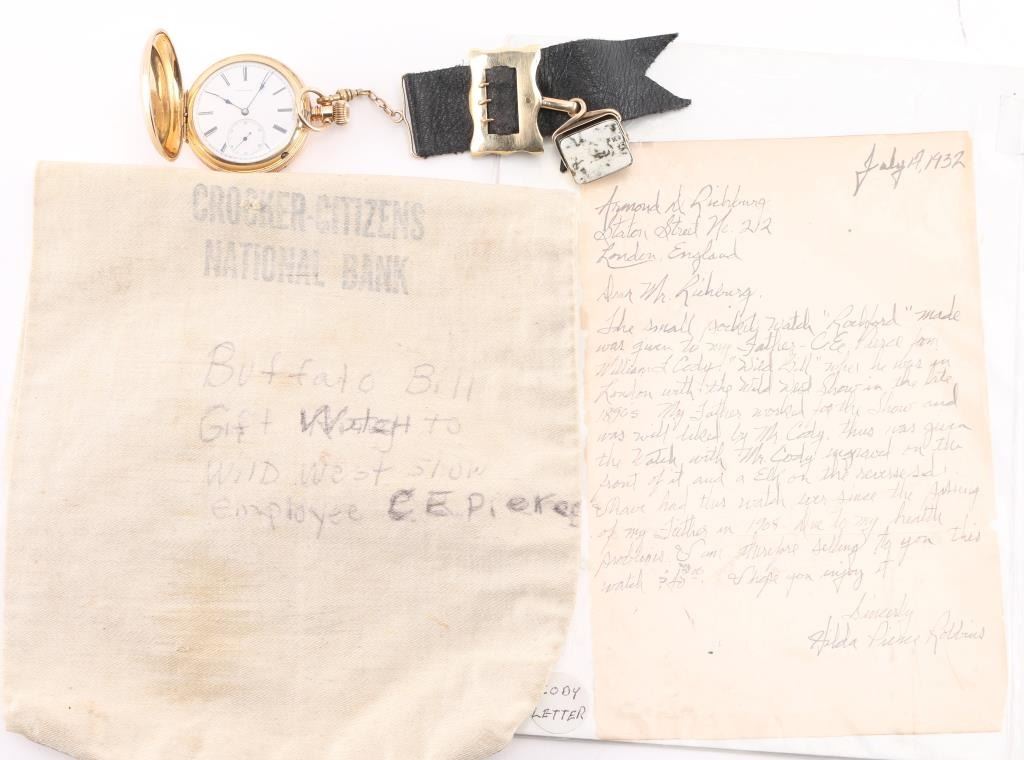 CROCKER-CITIZENS
NATIONAL BANK
Buffalo Bill
Gift Watch to
Wild West Show
Employee C.E. Pierce
CODY
LETTER
July 19, 1932
Armond D. Richburg
Staton Street No. 212
London, England
Dear Mr. Richburg,
The small pocket watch "Rockford" made
was given to my Father - C.E. Pierce from
William F Cody, "Wild Bill" when he was in
London with the Wild West Show in the late
1890s. My Father worked for the Show and
was well liked by Mr Cody, thus was given
the Watch with Mr. Cody engraved on the
front of it and a Elk on the reverse side.
I have had this watch ever since the passing
of my Father in 1908. due to my health
problems I am therefore selling to you this
watch I hope you enjoy it
Sincerly
Hilda Pierce Robbins